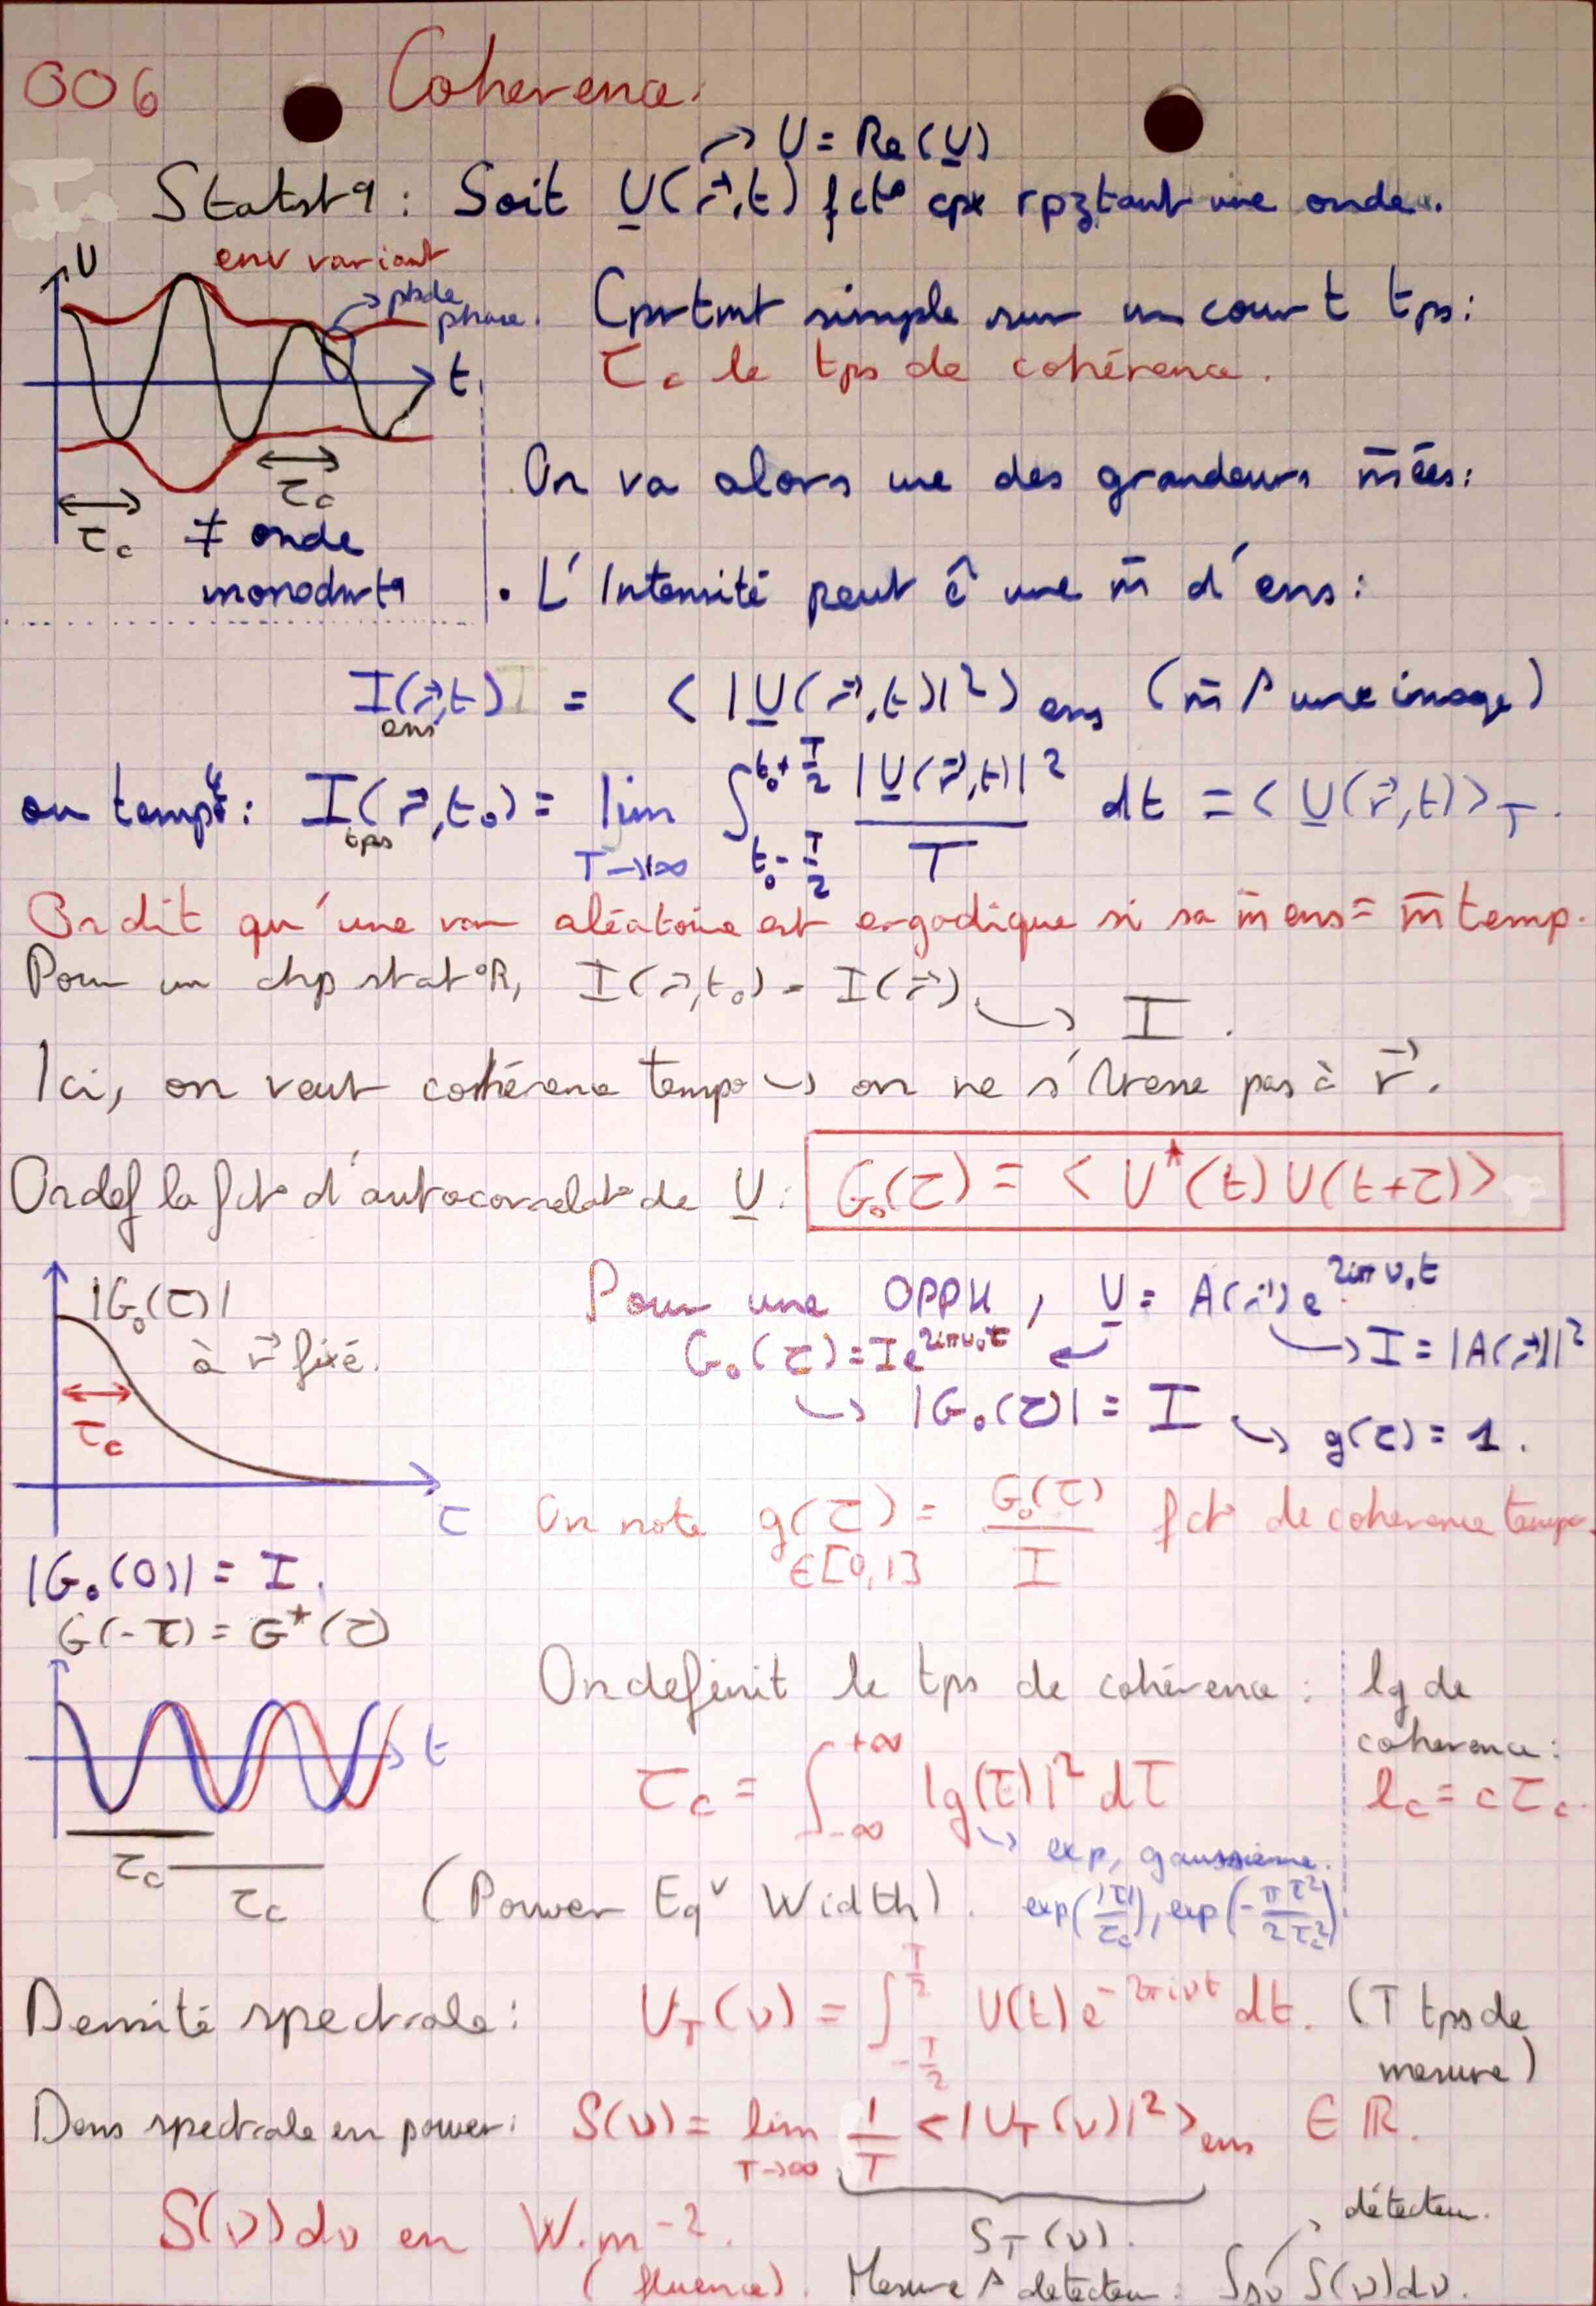 OO6 Coherence.
→ U = Re(U)
Statist9 : Soit U(r⃗,t) fct° cpx rpztant une onde.
U
env variant
→ pb de phase.
t
τc
τc
≠ onde
monochrt9
Cprtmt simple sur un court tps :
τc le tps de cohérence.
On va alors use des grandeurs m̄ées :
• L'Intensité peut ê une m̄ d'ens :
I ens (r⃗,t) = < |U(r⃗,t)|² > ens (m̄ / une image)
ou tempo : I tps (r⃗,t₀) = lim T→+∞ ∫ t₀-T/2 t₀+T/2 |U(r⃗,t)|²/T dt = < U(r⃗,t) >T.
On dit qu'une var aléatoire est ergodique si sa m̄ ens = m̄ temp.
Pour un chp stat°R, I(r⃗,t₀) = I(r⃗) ↪ I.
Ici, on veut cohérence tempo ↪ on ne s'∫resse pas à r⃗.
On def la fct° d'autocorrelat° de U : G₀(τ) = < U*(t) U(t+τ) >
|G₀(τ)|
à r⃗ fixé.
τc
τ
Pour une OPPH, U = A(r⃗) e^2iπν₀t
↪ I = |A(r⃗)|²
G₀(τ) = I e^2iπν₀τ ↩
↪ |G₀(τ)| = I ↪ g(τ) = 1.
On note g(τ) = G₀(τ)/I fct° de coherence tempo.
∈[0,1]
|G₀(0)| = I.
G(-τ) = G*(τ)
t
τc
τc
On definit le tps de cohérence :
τc = ∫ -∞ +∞ |g(τ)|² dτ
↪ exp, gaussienne.
(Power Eq^v Width). exp(|τ|/τc), exp(-πτ²/2τc²)
lg de
coherence :
lc = cτc.
Densité spectrale : U_T(ν) = ∫ -T/2 T/2 U(t) e^-2πiνt dt. (T tps de
mesure)
Dens spectrale en power : S(ν) = lim T→∞ 1/T <|U_T(ν)|²> ens ∈ ℝ.
S_T(ν).
S(ν)dν en W.m⁻².
(fluence). Mesure / detecteur : ∫Δν S(ν)dν.
détecteur.